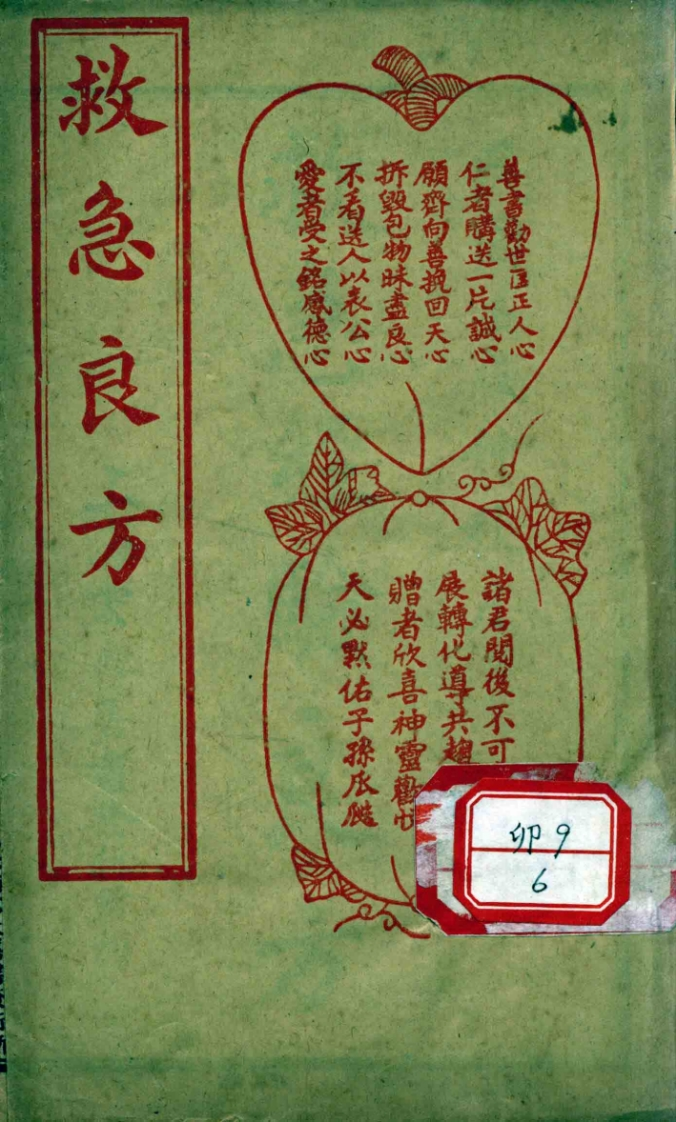 救急良方
善書勸世匡正人心
仁者購送一片誠心
願齊向善挽回天心
拆毀包物昧盡良心
不看送人以表公心
愛者受之銘感德心
諸君閱後不可
展轉化導共趨
贈者欣喜神靈歡悅
天必默佑子孫瓜瓞
卯9
6